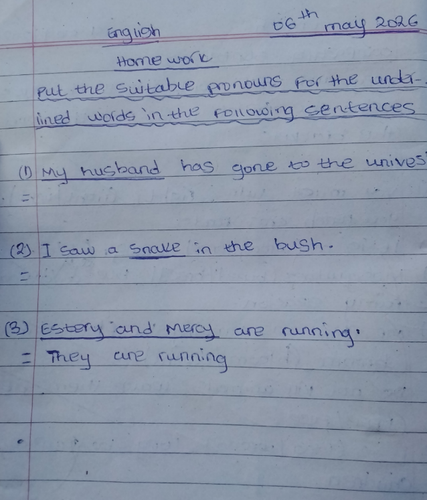 English 06th may 2026
Home work
Put the suitable pronouns for the under-
ined words in the following sentences
(1) My husband has gone to the univesi
=
(2) I saw a snake in the bush.
=
(3) Estery and Mercy are running.
= They are running